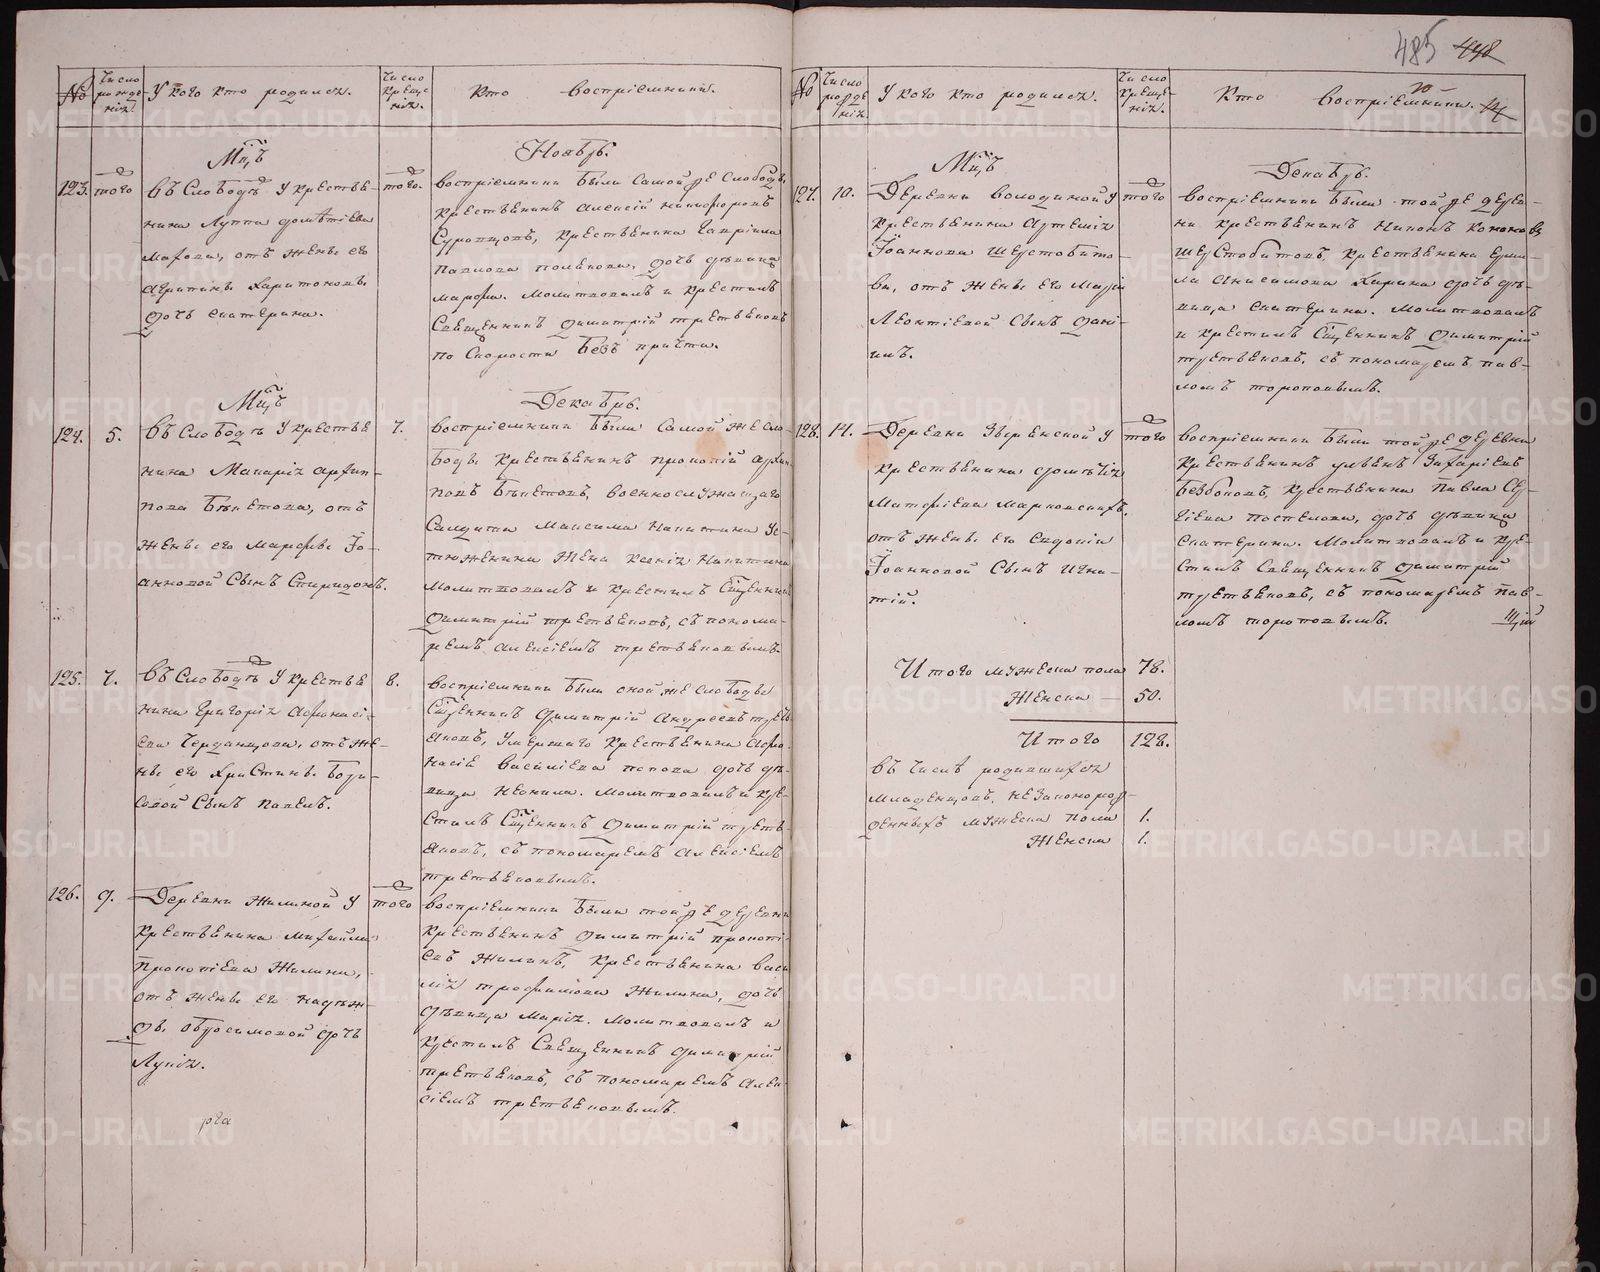 485 448
№
Число рожде-нія.
У кого кто родился.
Число креще-нія.
Кто воспріемники.
Мцъ Ноябрь.
123. того
въ Слободѣ у крестья-
нина Луппа
Махова, отъ жены его
Агрипины Харитоновы
дочь Екатерина.
того.
воспріемники были самой же слободы
крестьянинъ Алексій Никифоровъ
Суровцовъ, крестьянина Гавріила
Павлова Полякова, дочь дѣвица
Марфа. Молитвовалъ и крестилъ
Священникъ Димитрій Третьяковъ
по скорости безъ причта.
Мцъ Декабрь.
124. 5.
въ Слободѣ у крестья
нина Макарія Архип-
пова Бѣлетова, отъ
жены его Марфы Іо-
анновой сынъ Спиридонъ.
7.
воспріемники были самой же сло-
боды крестьянинъ Прокопій Архип
повъ Бѣлетовъ, военнослужащаго
Салдата Максима Никитина Ус-
тюженина жена Ксенія Никитина
молитвовалъ и крестилъ Сщенникъ
Димитрій Третьяковъ, съ понома-
ремъ Алексіемъ Третьяковымъ.
125. 7.
въ Слободѣ у крестья
нина Григорія Афонасі-
ева Черданцова, отъ же-
ны его Христины Бори-
совой сынъ Павелъ.
8.
воспріемники были оной же слободы
Сщенникъ Димитрій Андреевъ Треть
яковъ, умершаго крестьянина Афо-
насія Василіева Попова дочь дѣ-
вица Неонила. Молитвовалъ и кре-
стилъ Сщенникъ Димитрій Треть-
яковъ, съ пономаремъ Алексіемъ
Третьяковымъ.
126. 9.
Деревни Жилиной у
крестьянина Михайла
Прокопіева Жилина,
отъ жены его Надѣж-
ды Обросимовой дочь
Лукія.
того
воспріемники были той же деревни
крестьянинъ Димитрій Прокопі-
евъ Жилинъ, крестьянина Васи
лія Трофимова Жилина, дочь
дѣвица Марія. Молитвовалъ и
крестилъ Священникъ Димитрій
Третьяковъ, съ пономаремъ Алек-
сіемъ Третьяковымъ.
№
Число рожде-нія.
У кого кто родился.
Число креще-нія.
Кто воспріемники.
Мцъ Декабрь.
127. 10.
Деревни Володиной у
крестьянина Артемія
Іоаннова Шерстобито-
ва, отъ жены его Маріи
Леонтіевой сынъ Дані-
илъ.
того
воспріемники были той же дерев-
ни крестьянинъ Никонъ Кононовъ
Шерстобитовъ, крестьянина Ерми-
ла Анисимова Карина дочь дѣ-
вица Екатерина. Молитвовалъ
и крестилъ Сщенникъ Димитрій
Третьяковъ, съ пономаремъ Пав-
ломъ Тороповымъ.
128. 14.
Деревни Звѣревской у
крестьянина
Матфіева Марковскихъ,
отъ жены его Евдокіи
Іоанновой сынъ Игна-
тій.
того
воспріемники были той же деревни
крестьянинъ Ульянъ Захаріевъ
Беззбоковъ, крестьянина Павла Сер-
гіева Поспелова, дочь дѣвица
Екатерина. Молитвовалъ и кре-
стилъ Священникъ Димитрій
Третьяковъ, съ пономаремъ Пав-
ломъ Тороповымъ.
Итого мужеска пола 78.
Женска — 50.
Итого 128.
въ числѣ родившихся
младенцовъ, незаконорож-
денныхъ мужеска пола 1.
Женска 1.
METRIKI.GASO-URAL.RU